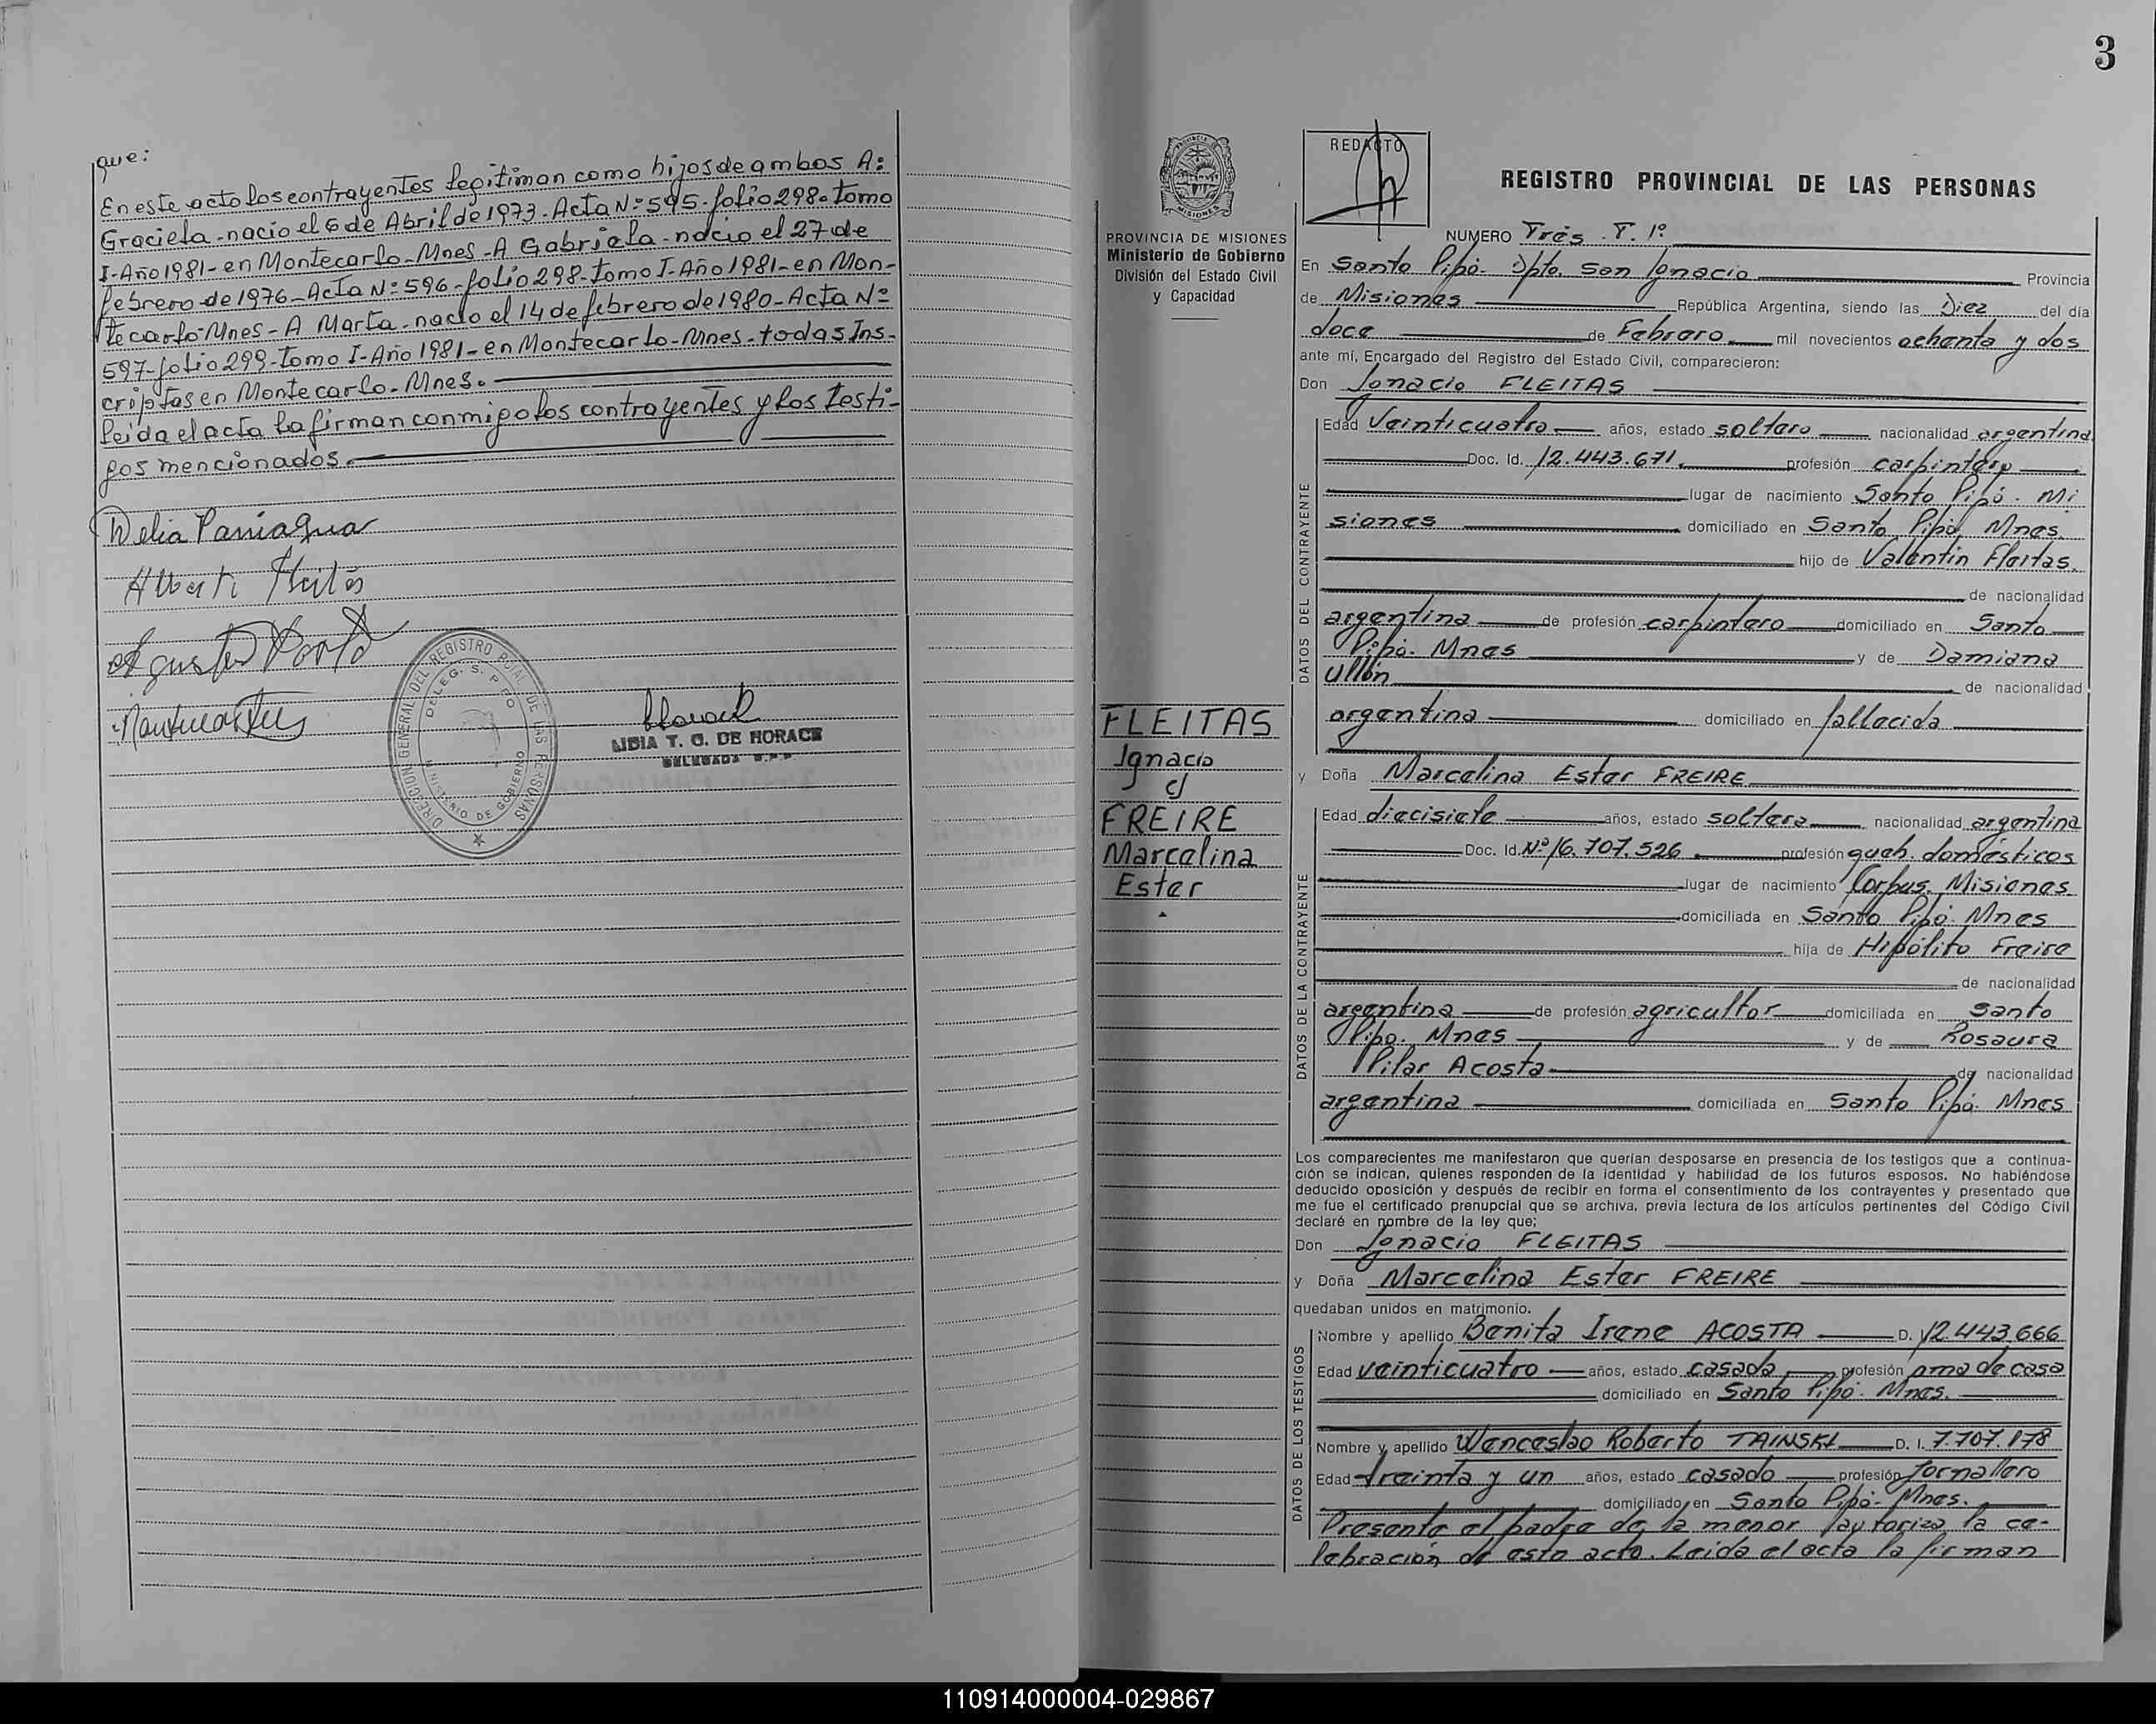 que:
En este acto los contrayentes legitiman como hijos de ambos A:
Graciela - nacio el 6 de Abril de 1973 - Acta Nº 595 - folio 298 - tomo
I - Año 1981 - en Montecarlo - Mnes - A Gabriela - nacio el 27 de
febrero de 1976 - Acta Nº 596 - folio 298 - tomo I - Año 1981 - en Mon-
tecarlo - Mnes - A Marta - nacio el 14 de febrero de 1980 - Acta Nº
597 - folio 299 - tomo I - Año 1981 - en Montecarlo - Mnes - todas Ins-
criptas en Montecarlo - Mnes.
leida el acta la firman conmigo los contrayentes y los testi-
gos mencionados.
Delia Paniagua
DIRECCION GENERAL DEL REGISTRO PCIAL. DE LAS PERSONAS
DELEG. S. PIPO
MINISTERIO DE GOBIERNO
LIDIA T. G. DE HORACK
3
PROVINCIA DE MISIONES
Ministerio de Gobierno
División del Estado Civil
y Capacidad
FLEITAS
Ignacio
c/
FREIRE
Marcelina
Ester
REDACTO
REGISTRO PROVINCIAL DE LAS PERSONAS
NUMERO Tres . T. 1º
En Santo Pipó - Dpto. San Ignacio Provincia
de Misiones República Argentina, siendo las Diez del día
doce de Febrero mil novecientos ochenta y dos
ante mí, Encargado del Registro del Estado Civil, comparecieron:
Don Ignacio FLEITAS
DATOS DEL CONTRAYENTE
Edad Veinticuatro años, estado soltero nacionalidad argentina
Doc. Id. 12.443.671. profesión carpintero
lugar de nacimiento Santo Pipó - Mi
siones domiciliado en Santo Pipó Mnes.
hijo de Valentin Fleitas.
de nacionalidad
argentina de profesión carpintero domiciliado en Santo
Pipó - Mnes y de Damiana
Ullón de nacionalidad
argentina domiciliado en fallecida
y Doña Marcelina Ester FREIRE
DATOS DE LA CONTRAYENTE
Edad diecisiete años, estado soltera nacionalidad argentina
Doc. Id. Nº 16.707.526. profesión queh. domésticos
lugar de nacimiento Corpus. Misiones.
domiciliada en Santo Pipó - Mnes
hija de Hipólito Freire
de nacionalidad
argentina de profesión agricultor domiciliada en Santo
Pipó. Mnes y de Rosaura
Pilar Acosta de nacionalidad
argentina domiciliada en Santo Pipó - Mnes
Los comparecientes me manifestaron que querían desposarse en presencia de los testigos que a continua-
ción se indican, quienes responden de la identidad y habilidad de los futuros esposos. No habiéndose
deducido oposición y después de recibir en forma el consentimiento de los contrayentes y presentado que
me fue el certificado prenupcial que se archiva, previa lectura de los artículos pertinentes del Código Civil
declaré en nombre de la ley que;
Don Ignacio FLEITAS
y Doña Marcelina Ester FREIRE
quedaban unidos en matrimonio.
DATOS DE LOS TESTIGOS
Nombre y apellido Benita Irene ACOSTA D. 12.443.666
Edad veinticuatro años, estado casada profesión ama de casa
domiciliado en Santo Pipó - Mnes.
Nombre y apellido Wenceslao Roberto TAINSKI D. I. 7.707.178
Edad treinta y un años, estado casado profesión Jornalero
domiciliado en Santo Pipó - Mnes.
Presente el padre de la menor autoriza la ce-
lebración de este acto. Leida el acta la firman
110914000004-029867